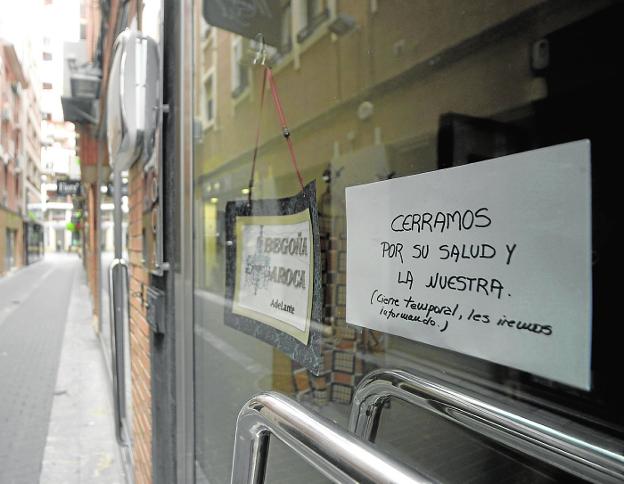 BEGOÑA
AROCA
Adelante
CERRAMOS
POR SU SALUD Y
LA NUESTRA.
(Cierre temporal, les iremos
informando.)